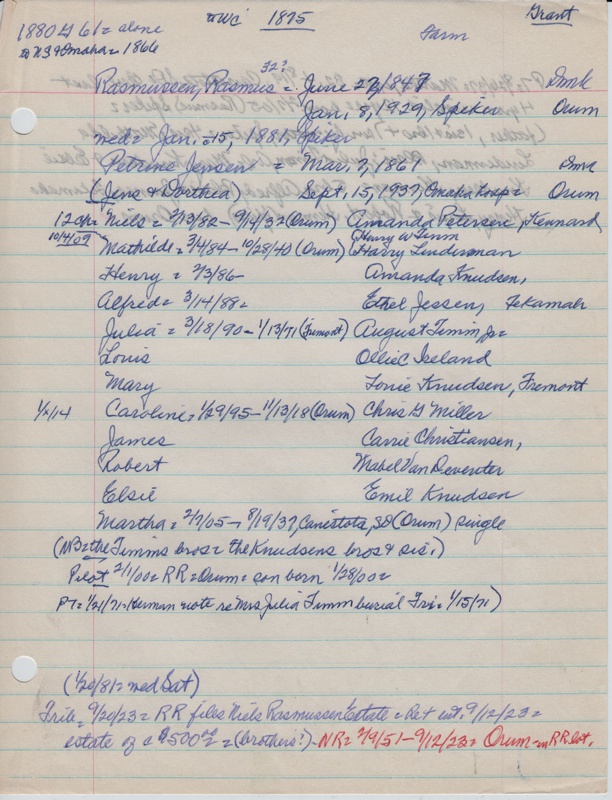 to WC 1875 Grant
1880 G 61 = alone
to NY & Omaha = 1866
Farm
32?
Rasmussen, Rasmus = June 27, 1847 Dmk
Jan. 8, 1929, Spiker Orum
med = Jan. 15, 1881, Spiker
Petrine Jensen = Mar. 7, 1861 Dmk
(Jens & Dorthea) Sept. 15, 1937, Omaha Hosp = Orum
12 ch = Niels = 2/13/82 - 9/14/32 (Orum) Amanda Petersen, Kennard
10/4/09 Mathilde = 3/4/84 - 10/28/40 (Orum) Henry W Timm
Harry Linderman
Henry = 2/3/86 - Amanda Knudsen,
Alfred = 3/14/88 = Ethel Jessen, Tekamah
Julia = 3/18/90 - 1/13/71 (Fremont) August Timm, Jr =
Louis Ollie C Iseland
Mary Louie Knudsen, Fremont
1/x/14 Caroline = 1/29/95 - 11/13/18 (Orum) Chris G Miller
James Carrie Christiansen,
Robert Mabel Van Deventer
Elsie Emil Knudsen
Martha = 2/7/05 - 8/19/37, Canistota, SD (Orum) single
(NB = the Timms bros = the Knudsens bros & sis.)
Pilot 2/1/00 = RR = Orum = son born 1/28/00 =
PT = 1/21/71 = Herman wrote re Mrs Julia Timm burial Fri = 1/15/71)
(1/20/81 = med Sat)
Trib = 9/20/23 = RR files Niels Rasmussen Estate = Pet int. 9/12/23 =
estate of c $500.00 = (brothers?) - NR = 2/9/51 - 9/12/23 = Orum - in RR lot.